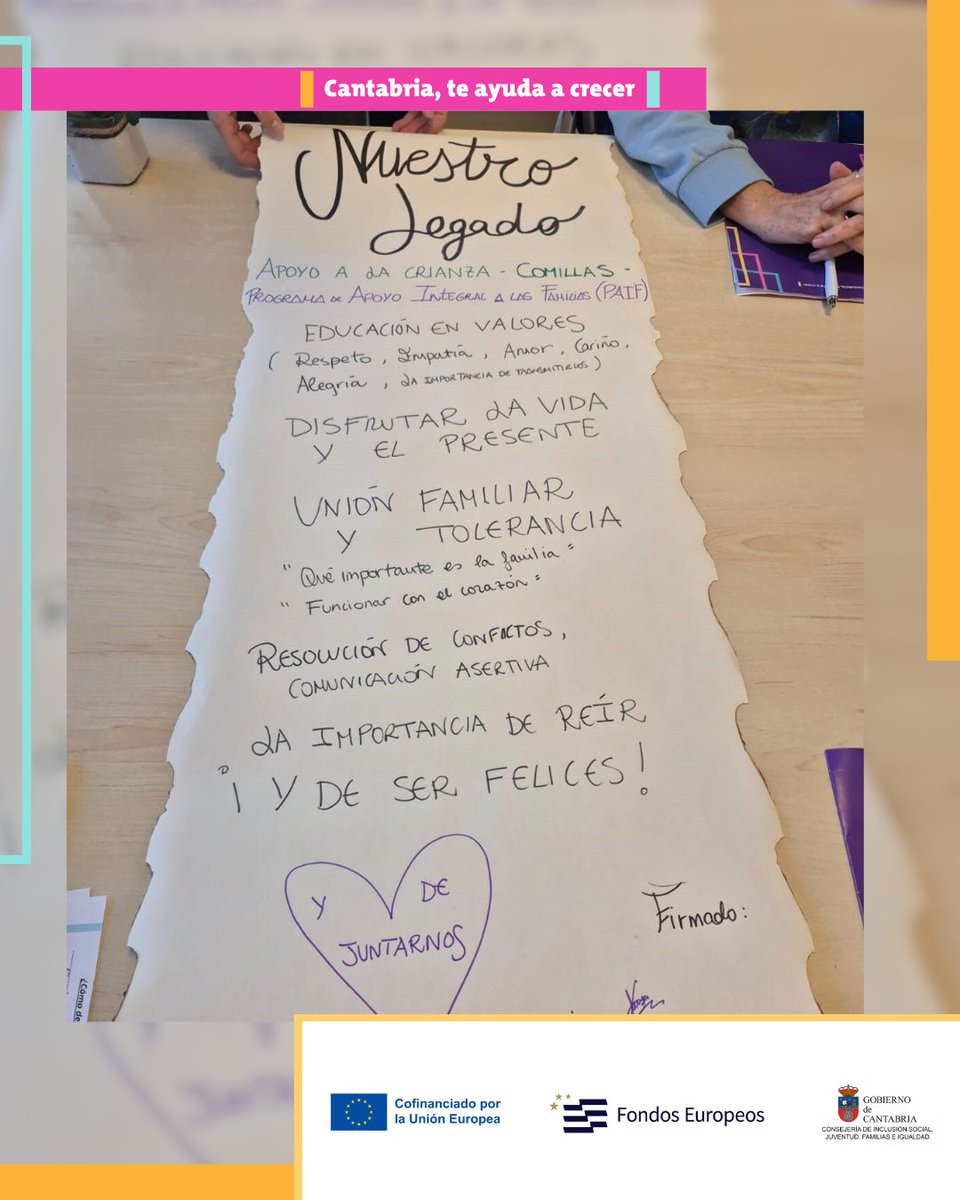 Cantabria, te ayuda a crecer
Nuestro
Legado
APOYO A LA CRIANZA - COMILLAS -
PROGRAMA DE APOYO INTEGRAL A LAS FAMILIAS (PAIF)
EDUCACIÓN EN VALORES
( Respeto, Empatía, Amor, Cariño,
Alegría, LA IMPORTANCIA DE TRANSMITIRLOS )
DISFRUTAR LA VIDA
Y EL PRESENTE
UNIÓN FAMILIAR
Y TOLERANCIA
"Qué importante es la familia"
"Funcionar con el corazón"
RESOLUCIÓN DE CONFLICTOS,
COMUNICACIÓN ASERTIVA
LA IMPORTANCIA DE REÍR
¡Y DE SER FELICES!
Y DE
JUNTARNOS
Firmado:
¿Cómo de
Cofinanciado por
la Unión Europea
Fondos Europeos
GOBIERNO
de
CANTABRIA
CONSEJERÍA DE INCLUSIÓN SOCIAL,
JUVENTUD, FAMILIAS E IGUALDAD